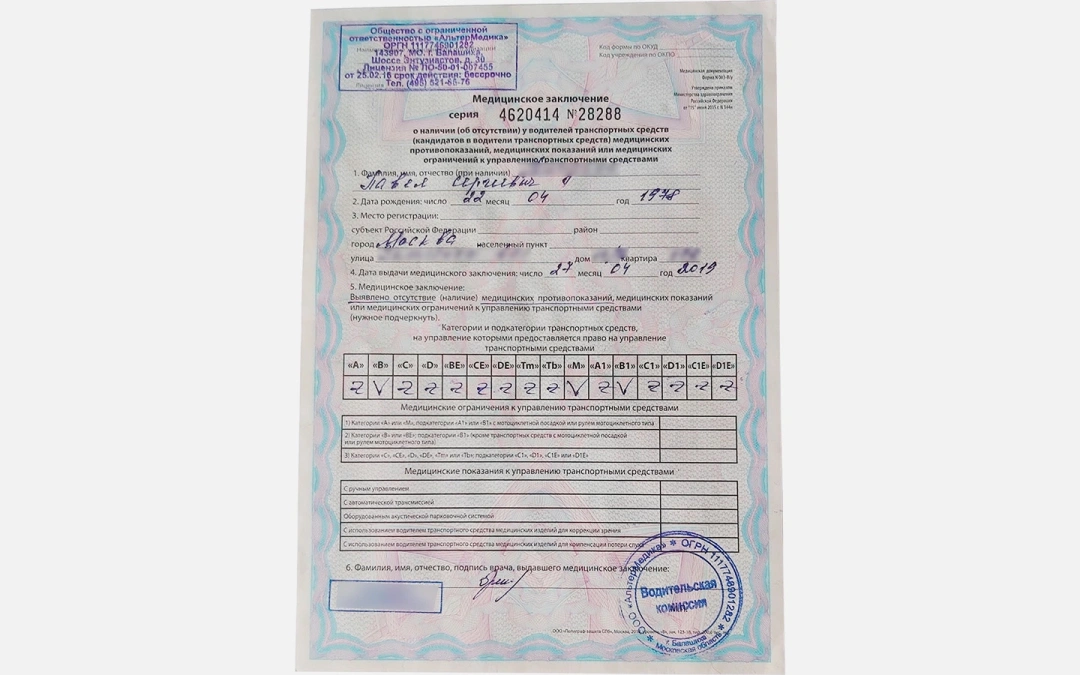 Общество с ограниченной
ответственностью «АльтерМедика»
ОРГН 1117746901282
143907, МО, г. Балашиха,
Шоссе Энтузиастов, д. 30
Лицензия № ЛО-50-01-007455
от 25.02.16 срок действия: бессрочно
Тел. (495) 521-65-76
Код формы по ОКУД
Код учреждения по ОКПО
Медицинская документация
Форма N 003-В/у
Утверждена приказом
Министерства здравоохранения
Российской Федерации
Медицинское заключение
серия 4620414 №28288
о наличии (об отсутствии) у водителей транспортных средств
(кандидатов в водители транспортных средств) медицинских
противопоказаний, медицинских показаний или медицинских
ограничений к управлению транспортными средствами
1. Фамилия, имя, отчество (при наличии)
Павел Сергеевич
2. Дата рождения: число 22 месяц 04 год 1978
3. Место регистрации:
субъект Российской Федерации район
город Москва населенный пункт
улица дом квартира
4. Дата выдачи медицинского заключения: число 27 месяц 04 год 2019
5. Медицинское заключение:
Выявлено отсутствие (наличие) медицинских противопоказаний, медицинских показаний
или медицинских ограничений к управлению транспортными средствами
(нужное подчеркнуть).
Категории и подкатегории транспортных средств,
на управление которыми предоставляется право на управление
транспортными средствами
«A» «B» «C» «D» «BE» «CE» «DE» «Tm» «Tb» «M» «A1» «B1» «C1» «D1» «C1E» «D1E»
Z V Z Z Z Z Z Z Z V Z V Z Z Z Z
Медицинские ограничения к управлению транспортными средствами
1) Категории «А» или «М», подкатегории «А1» или «В1» с мотоциклетной посадкой или рулем мотоциклетного типа
2) Категории «В» или «ВЕ», подкатегории «В1» (кроме транспортных средств с мотоциклетной посадкой
или рулем мотоциклетного типа)
3) Категории «С», «СЕ», «D», «DE», «Tm» или «Tb», подкатегории «C1», «D1», «C1E» или «D1E»
Медицинские показания к управлению транспортными средствами
С ручным управлением
С автоматической трансмиссией
Оборудованным акустической парковочной системой
С использованием водителем транспортного средства медицинских изделий для коррекции зрения
С использованием водителем транспортного средства медицинских изделий для компенсации потери слуха
6. Фамилия, имя, отчество, подпись врача, выдавшего медицинское заключение:
ООО «АльтерМедика» * ОГРН 1117746901282 *
Водительская
комиссия
г. Балашиха
Московская область